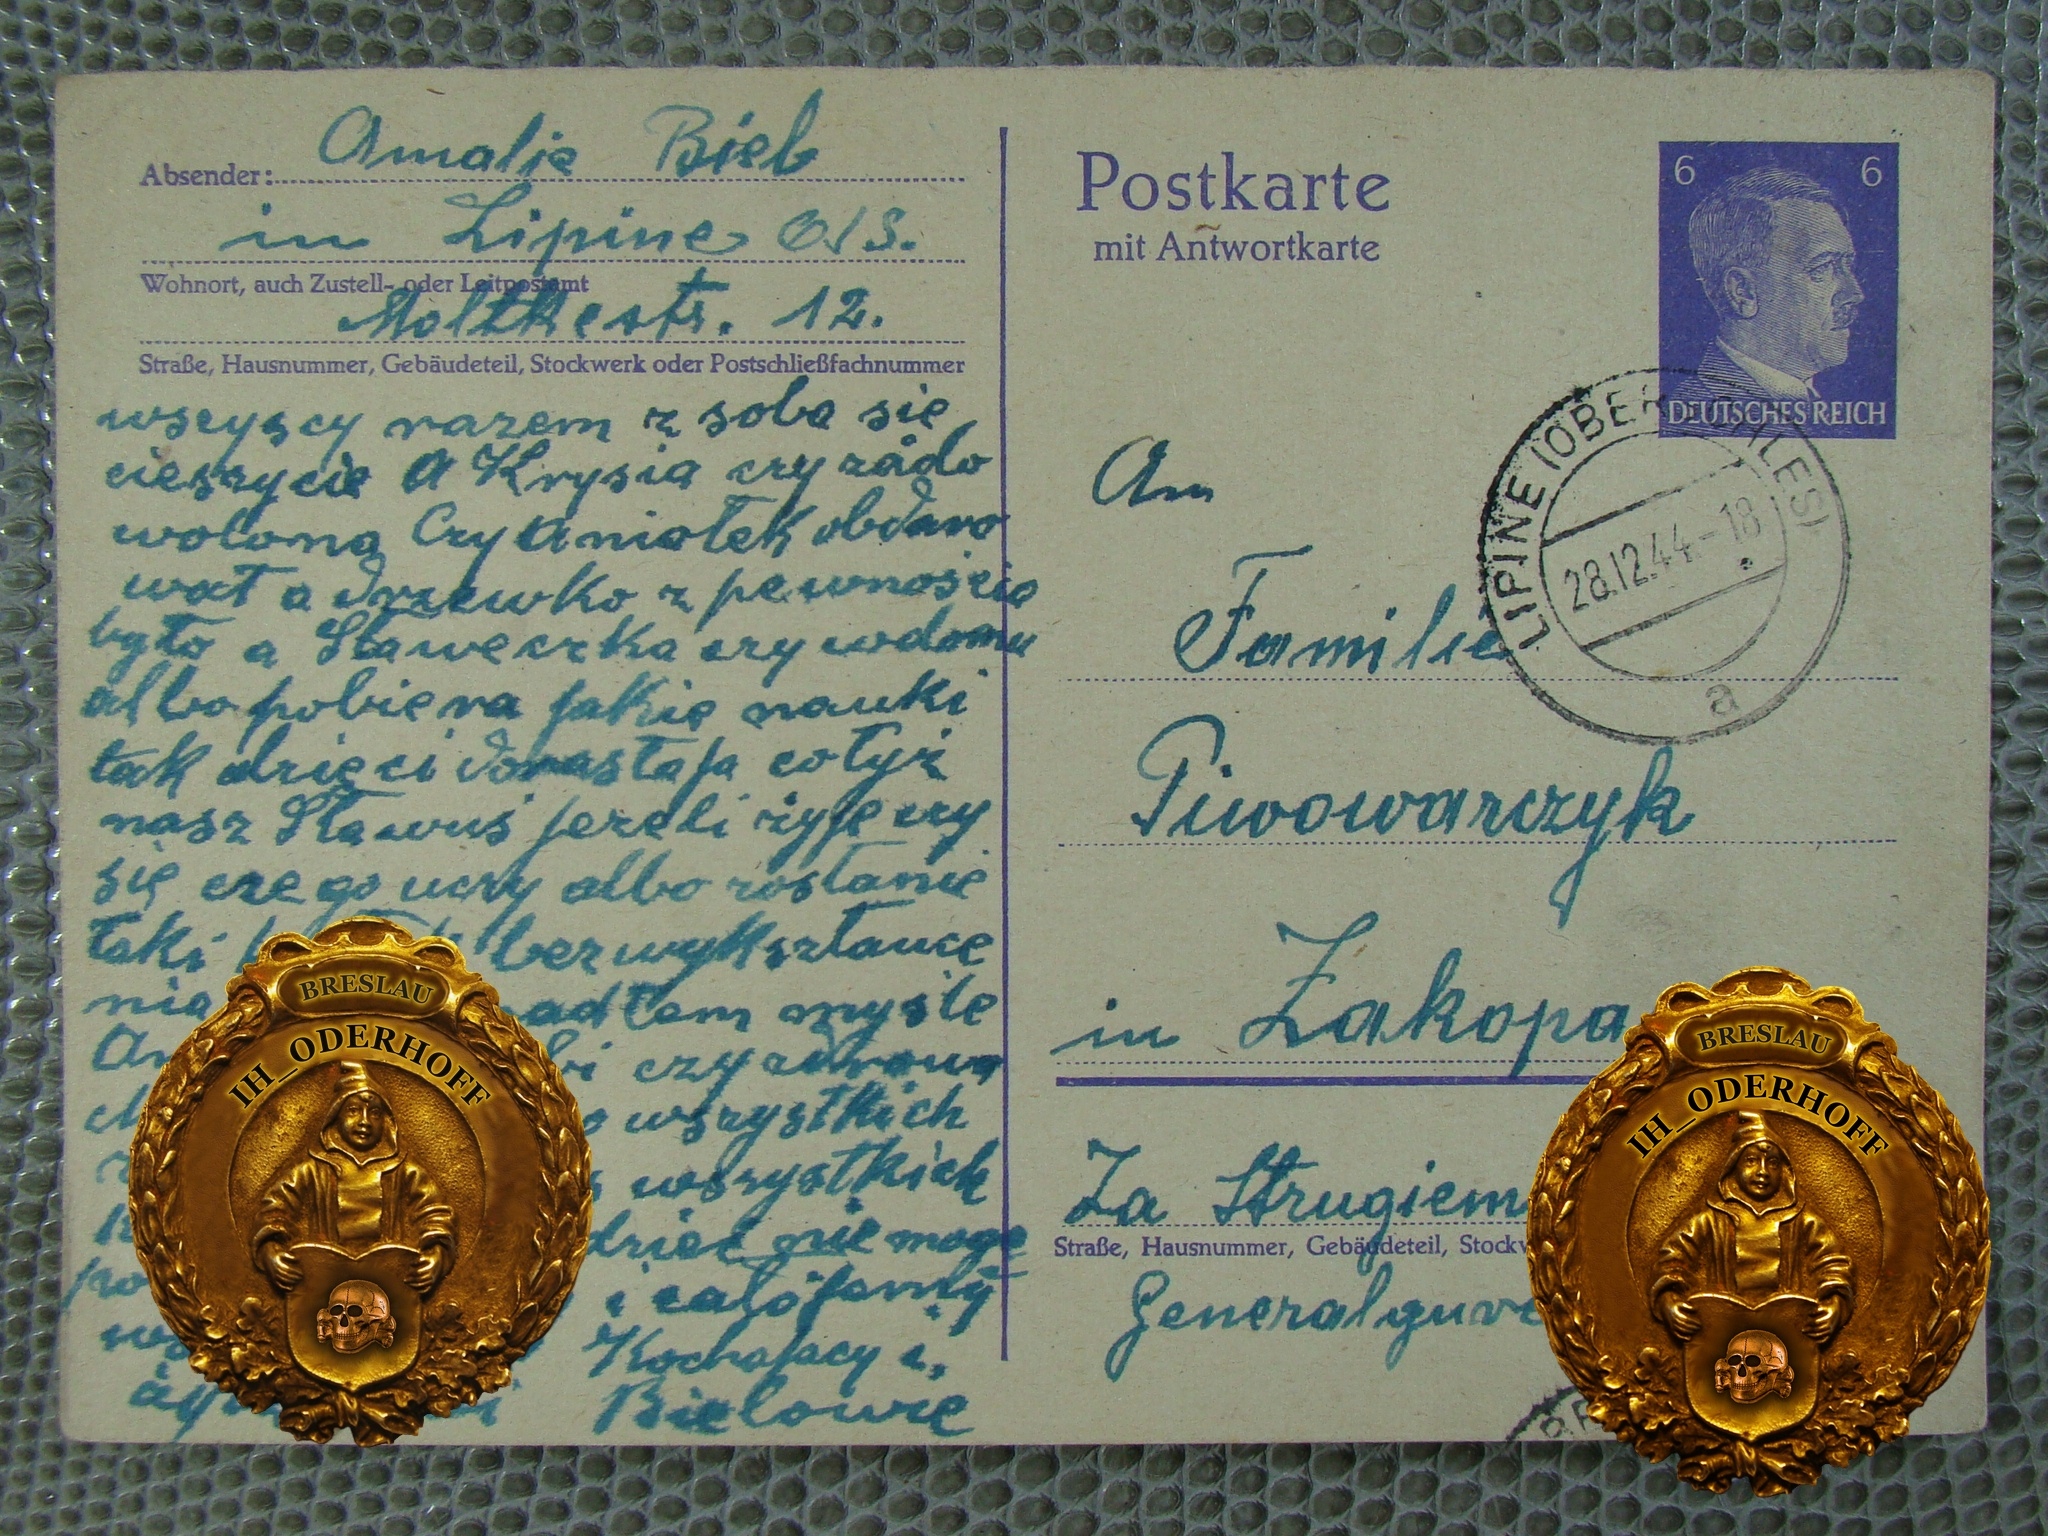 Amalie Bieb
Absender:
in Lipine O/S.
Wohnort, auch Zustell- oder Leitpostamt
Moltkestr. 12.
Straße, Hausnummer, Gebäudeteil, Stockwerk oder Postschließfachnummer
wszyscy razem z sobą się
cieszycie A Krysia czy zado
wolona Czy Aniołek obdaro
wał a drzewko z pewnością
było a Staweczka czy wdomu
albo pobiera jakie nauki
tak dzieci dorastają co tyż
nasz Stawuś jezeli żyje czy
się czego uczy albo zostanie
taki bez wykształce
nia adłem myśle
czy zdrowa
wszystkich
wszystkich
dzieć nie moge
i całą famly
Kochający i,
Bielowie
Postkarte
mit Antwortkarte
6 6
DEUTSCHES REICH
LIPINE (OBERSCHLES)
28.12.44.-18
a
An
Familie
Piwowarczyk
in Zakopa
Za Strugiem
Straße, Hausnummer, Gebäudeteil, Stockw
Generalguv
BRESLAU
IH_ODERHOFF
BRESLAU
IH_ODERHOFF